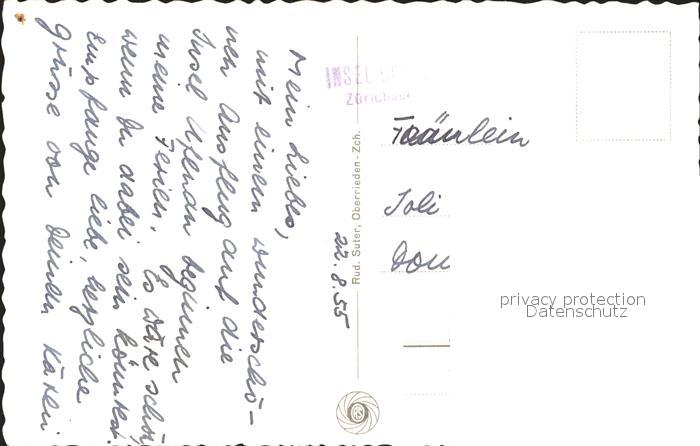 Mein Liebes,
mit einem wunderschö-
nen Ausflug auf die
Insel Ufenau beginnen
meine Ferien. Es wäre schön
wenn Du dabei sein könntest
Empfange liebe, herzliche
Grüsse von Deinem Karli
22.8.55
Rud. Suter, Oberrieden-Zch.
INSEL
Zürichsee
Fräulein
Joli
privacy protection
Datenschutz